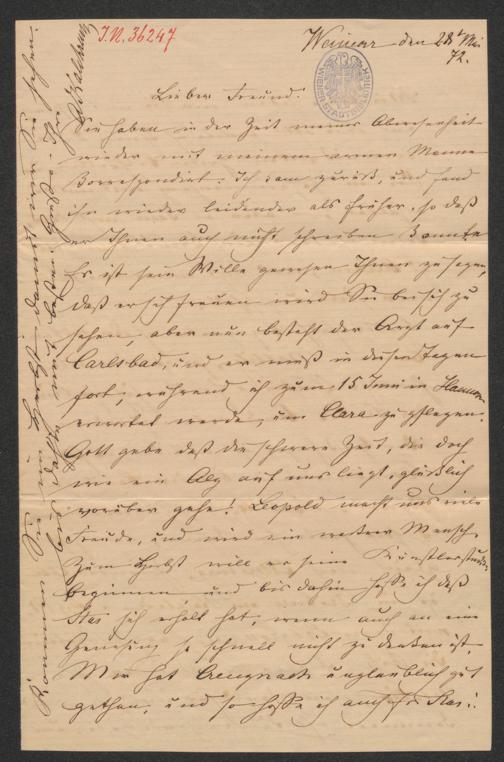 J.N. 36247
Weimar den 28t Mai
72.
WIENER STADTBIBLIOTHEK
Lieber Freund!
Sie haben in der Zeit meiner Abwesenheit
wieder mit meinem armen Manne
korrespondirt: Ich kam zurück, und fand
ihn wieder leidender als früher, so daß
er Ihnen auch nicht schreiben konnte
Es ist sein Wille gewesen Ihnen zu sagen,
daß er sich freuen wird Sie bei sich zu
sehen, aber nun besteht der Arzt auf
Carlsbad, und er muß in diesen Tagen
fort, während ich zum 15 Juni in Hannover
erwartet werde, um Clara zu pflegen.
Gott gebe daß die schwere Zeit, die doch
wie ein Alp auf uns liegt, glücklich
vorüber gehe! Leopold macht uns viele
Freude, und wird ein wackrer Mensch.
Zum Herbst will er seine Künstlerstudien
beginnen, und bis dahin hoffe ich daß
Kas sich erholt hat, wenn auch an eine
Genesung so schnell nicht zu denken ist.
Mir hat Creuznach unglaublich gut
gethan, und so hoffe ich auch für Kas:
Kommen Sie im Herbst damit wir Sie sehen.
mit besten Gruße Ihre